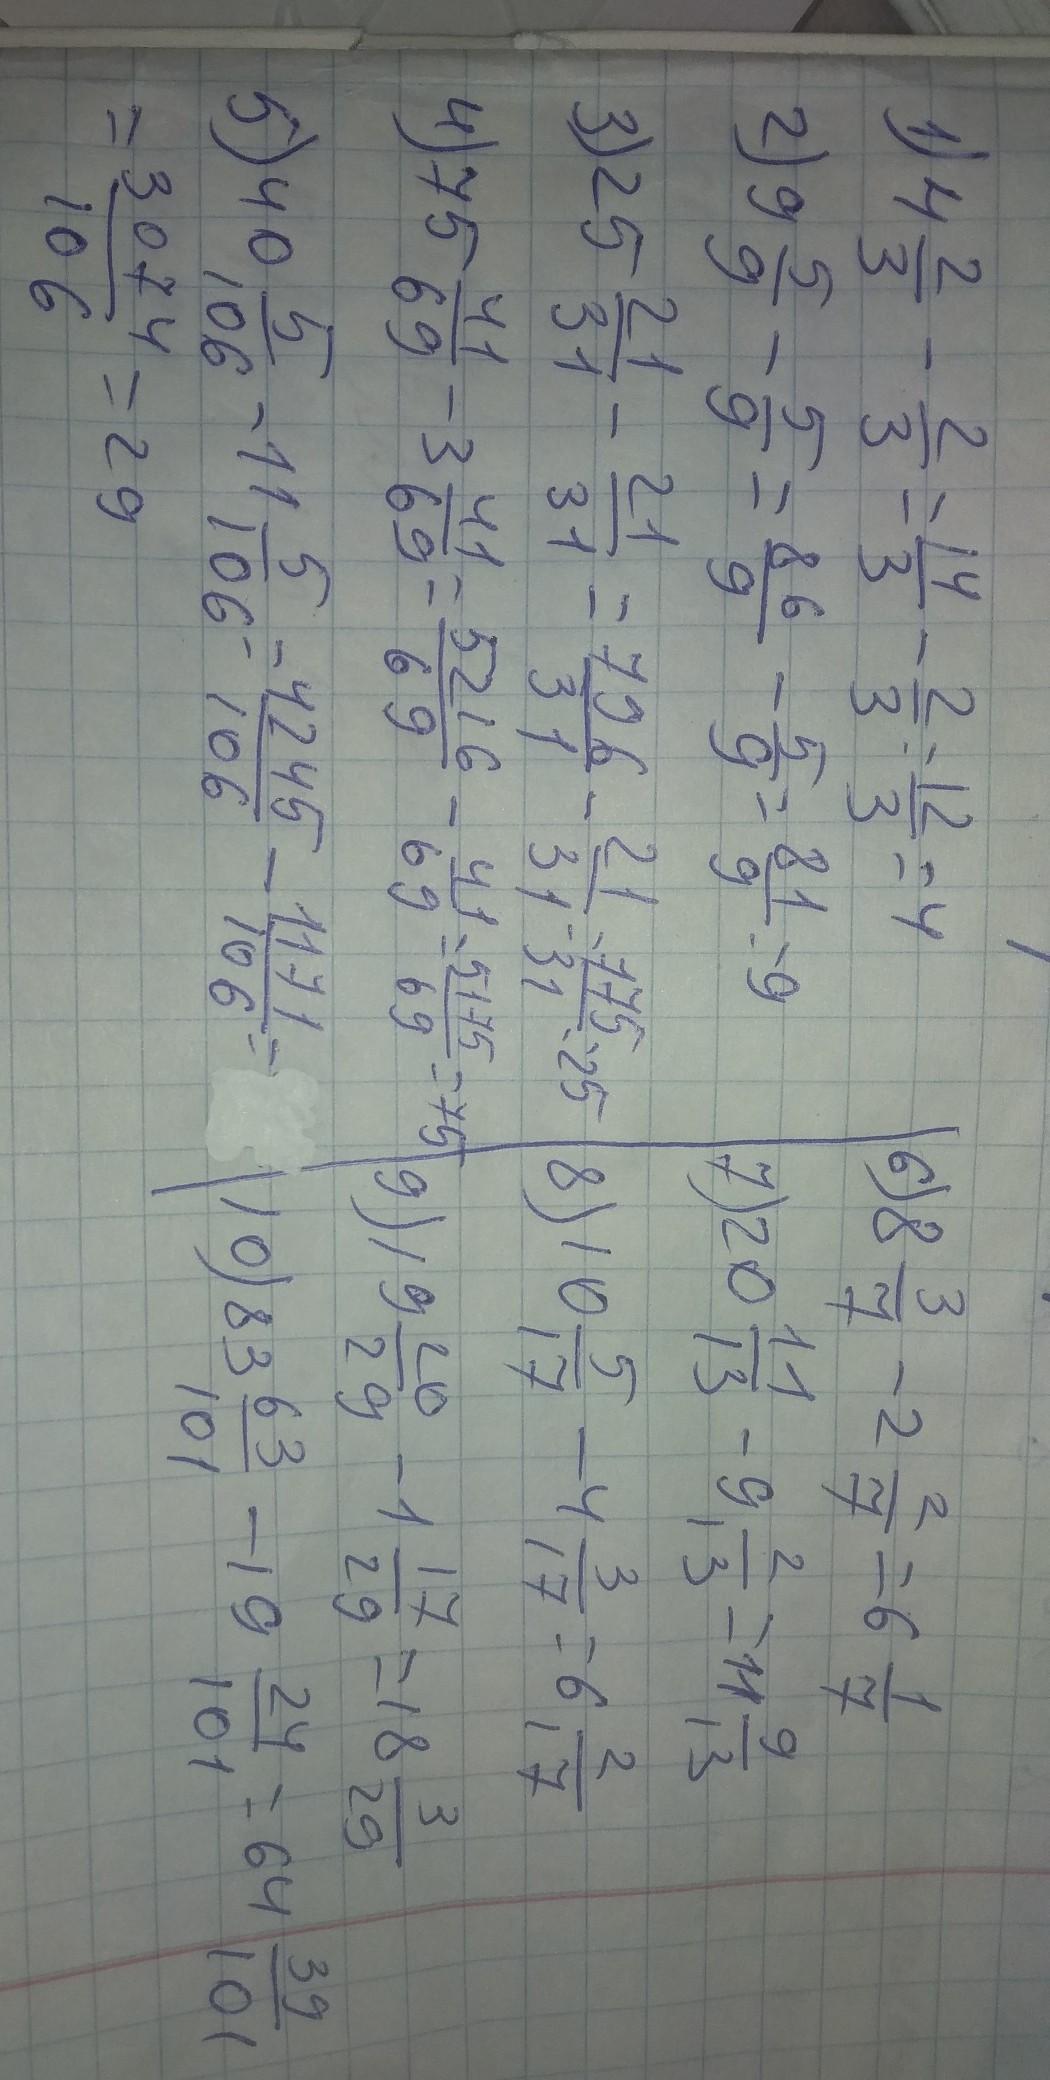 1) 4 2/3 - 2/3 = 14/3 - 2/3 = 12/3 = 4
2) 9 5/9 - 5/9 = 86/9 - 5/9 = 81/9 = 9
3) 25 21/31 - 21/31 = 796/31 - 21/31 = 775/31 = 25
4) 75 41/69 - 3 41/69 = 5216/69 - 41/69 = 5175/69 = 75
5) 40 5/106 - 11 5/106 = 4245/106 - 1171/106 =
= 3074/106 = 29
6) 8 3/7 - 2 2/7 = 6 1/7
7) 20 11/13 - 9 2/13 = 11 9/13
8) 10 5/17 - 4 3/17 = 6 2/17
9) 19 20/29 - 1 17/29 = 18 3/29
10) 83 63/101 - 19 24/101 = 64 39/101